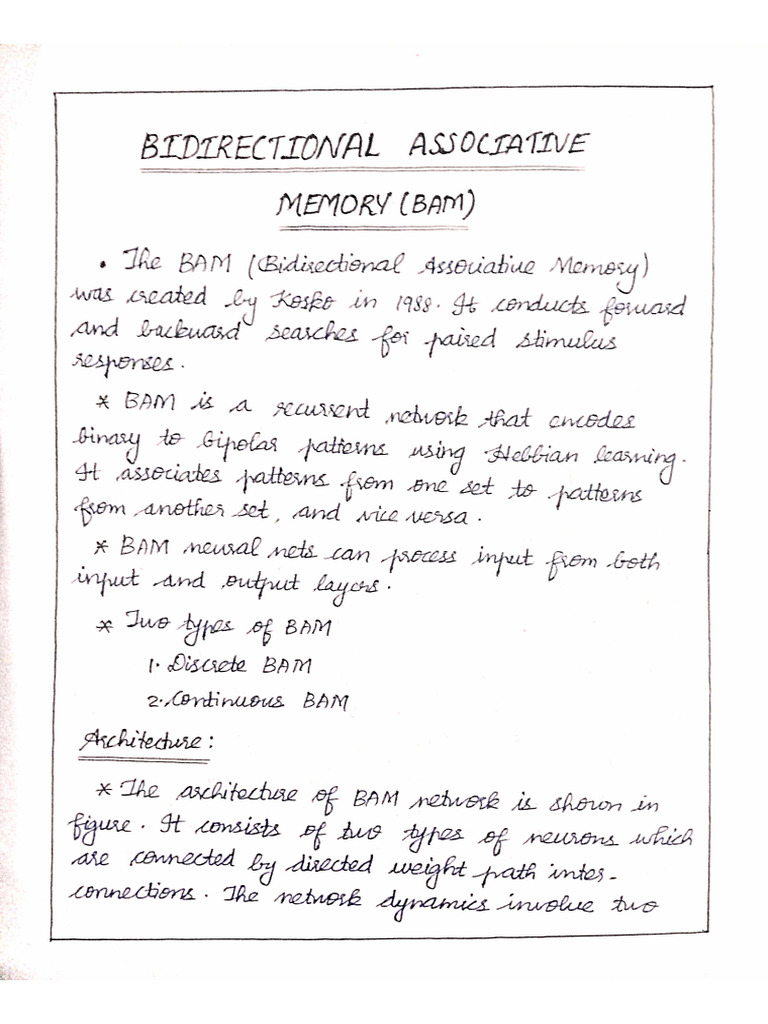 BIDIRECTIONAL ASSOCIATIVE
MEMORY (BAM)
• The BAM (Bidirectional Associative Memory)
was created by Kosko in 1988. It conducts forward
and backward searches for paired stimulus
responses.
* BAM is a recurrent network that encodes
binary to bipolar patterns using Hebbian learning.
It associates patterns from one set to patterns
from another set, and vice versa.
* BAM neural nets can process input from both
input and output layers.
* Two types of BAM
1. Discrete BAM
2. Continuous BAM
Architecture:
* The architecture of BAM network is shown in
figure. It consists of two types of neurons which
are connected by directed weight path inter-
connections. The network dynamics involve two